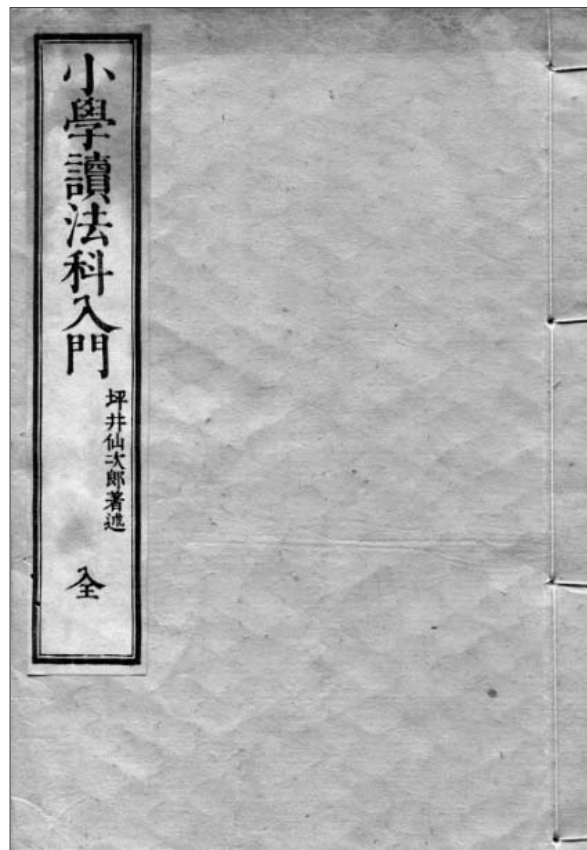 小學讀法科入門
坪井仙次郎著述
全